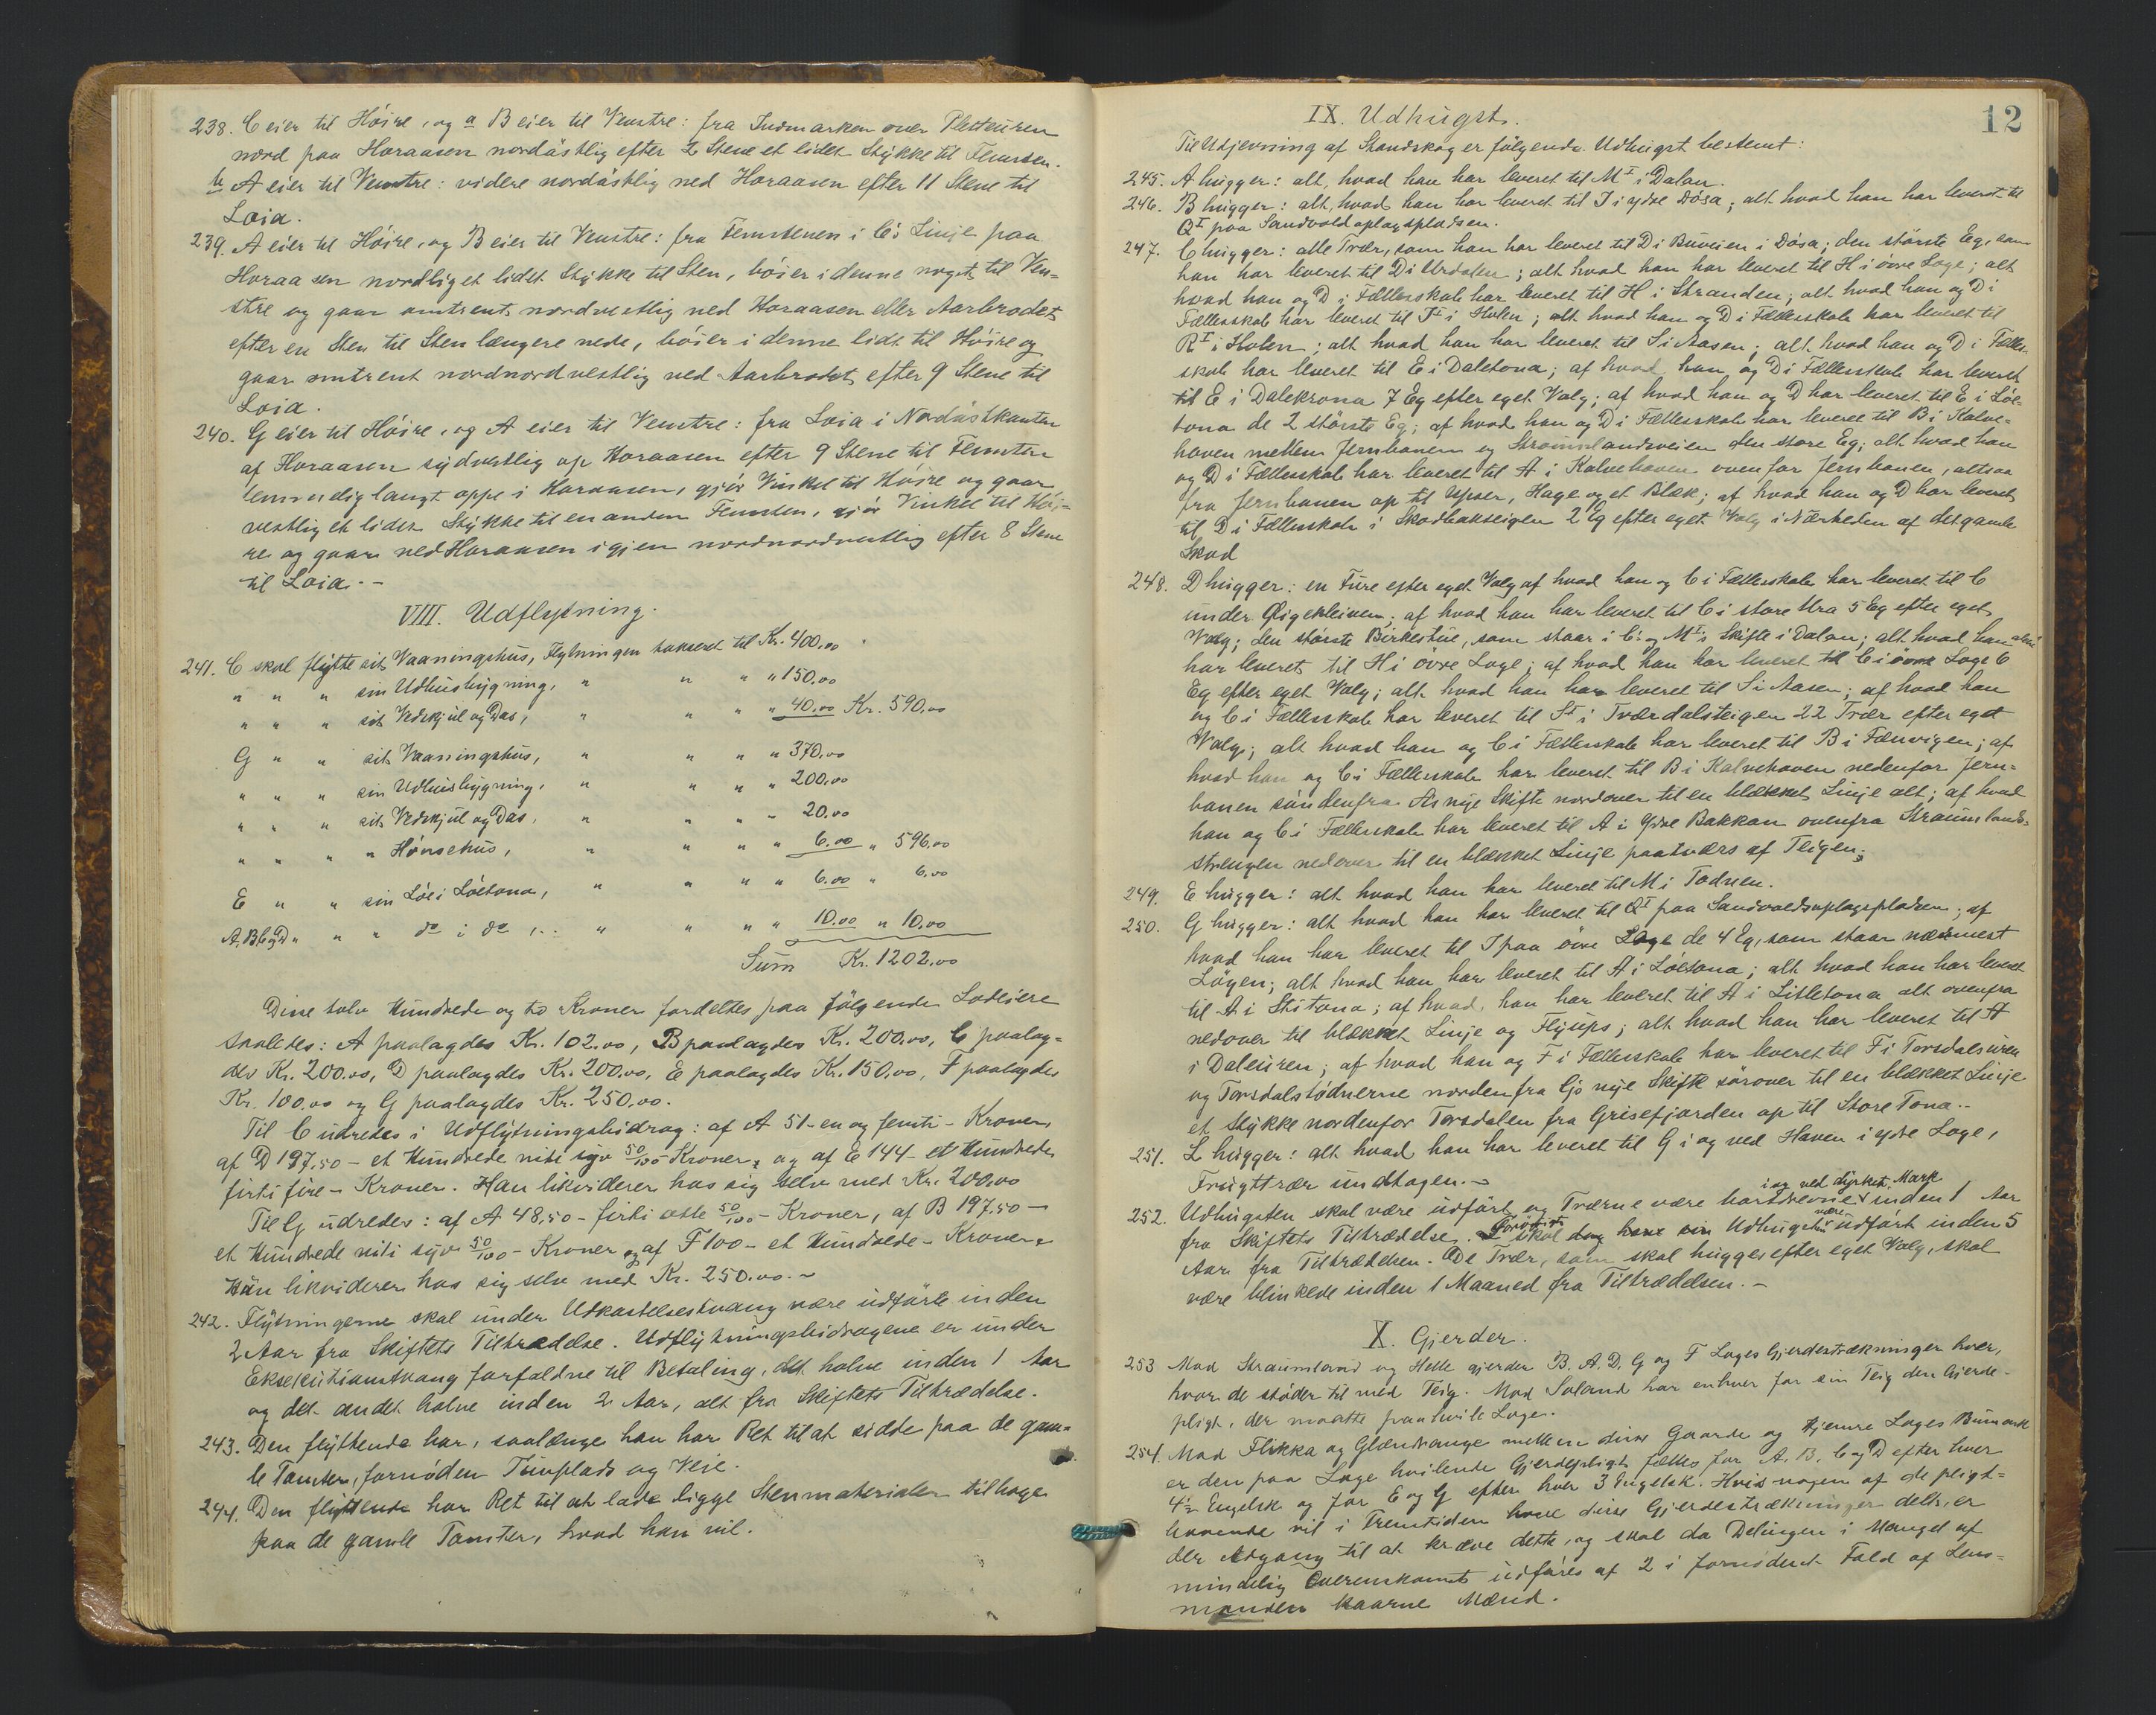 238. C eier til Höire, og a B eier til Venstre: fra Indmarken over Pletteuren
nord paa Horaasen nordöstlig efter 2 Stene et lidet Stykke til Femsten.
b A eier til Venstre: videre nordöstlig ned Horaasen efter 11 Stene til
Loia.
239. A eier til Höire, og B eier til Venstre: fra Femstenen i C's Linje paa
Horaasen nordlig et lidet Stykke til Sten, böier i denne noget til Ven-
stre og gaar omtrent nordvestlig ned Horaasen eller Aarbrodet
efter en Sten til Sten længere nede, böier i denne lidt til Höire og
gaar omtrent nordnordvestlig ned Aarbrodet efter 9 Stene til
Loia.
240. G eier til Höire, og A eier til Venstre: fra Loia i Nordöstkanten
af Horaasen sydvestlig op Horaasen efter 9 Stene til Femsten
temmelig langt oppe i Horaasen, gjör Vinkel til Höire og gaar
vestlig et lidet Stykke til en anden Femsten, gjör Vinkel til Höi-
re og gaar ned Horaasen igjen nordnordvestlig efter 8 Stene
til Loia. -
VIII. Udflytning.
241. C skal flytte sit Vaaningshus, Flytningen takseret til Kr. 400,00
" " " sin Udhusbygning, " " " " 150,00
" " " sit Vedskjul og Das, " " " " 40,00 Kr. 590,00
G " " sit Vaaningshus, " " " " 370,00
" " " sin Udhusbygning, " " " " 200,00
" " " sit Vedskjul og Das, " " " " 20,00
" " " " Hönsehus, " " " " 6,00 " 596,00
E " " sin Löe i Löetona, " " " " 6,00 " 6,00
A, B C og D " " " do i do, .. " " " " 10,00 " 10,00
Sum Kr. 1202,00
Disse tolv Hundrede og to Kroner fordeltes paa fölgende Lodeiere
saaledes: A paalagdes Kr. 102,00, B paalagdes Kr. 200,00, C paalag-
des Kr. 200,00, D paalagdes Kr. 200,00, E paalagdes Kr. 150,00, F paalagdes
Kr. 100,00 og G paalagdes Kr. 250,00.
Til C udredes i Udflytningsbidrag: af A 51 - en og femti - Kroner,
af D 197,50 - et Hundrede niti syv 50/100 Kroner, og af E 144 - et Hundrede
firti fire - Kroner. Han likviderer hos sig selv med Kr. 200,00
Til G udredes: af A 48,50 - firti otte 50/100 - Kroner, af B 197,50 -
et Hundrede niti syv 50/100 - Kroner og af F 100 - et Hundrede - Kroner.
Han likviderer hos sig selv med Kr. 250,00. -
242. Flytningerne skal under Udkastelsestvang være udförte inden
2 Aar fra Skiftets Tiltrædelse. Udflytningsbidragene er under
Eksekutionstvang forfaldne til Betaling, det halve inden 1 Aar
og det andet halve inden 2 Aar, alt fra Skiftets Tiltrædelse.
243. Den flyttende har, saalænge han har Ret til at sidde paa de gam-
le Tomter, fornöden Tunplads og Veie.
244. Den flyttende har Ret til at lade ligge Stenmaterialer tilbage
paa de gamle Tomter, hvad han vil.
12
IX. Udhugst.
Til Udjevning af Standskog er fölgende Udhugst bestemt:
245. A hugger: alt, hvad han har leveret til M I i Dalan.
246. B hugger: alt, hvad han har leveret til J i ydre Dósa; alt hvad han har leveret til
Q I paa Sandvoldoplagspladsen.
247. C hugger: alle Trær, som han har leveret til D i Buveien i Dósa; den störste Eg, som
han har leveret til D i Urdalen; alt hvad han har leveret til H i övre Loge; alt
hvad han og D i Fællesskab har leveret til H i Stranden; alt hvad han og D i
Fællesskab har leveret til J I i Holen; alt hvad han og D i Fællesskab har leveret til
R I i Holen; alt hvad han har leveret til S i Aasen; alt hvad han og D i Fælles-
skab har leveret til E i Daletona; af hvad han og D i Fællesskab har leveret
til E i Dalekrona 7 Eg efter eget Valg; af hvad han og D har leveret til E i Löe-
tona de 2 störste Eg; af hvad han og D i Fællesskab har leveret til B i Kalve-
haven mellem Jernbanen og Straumslandsveien den store Eg; alt hvad han
og D i Fællesskab har leveret til A i Kalvehaven ovenfor Jernbanen, altsaa
fra Jernbanen op til Uyser, Hage og et Blæk; af hvad han og D har leveret
til D i Fællesskab i Skodbakteigen 2 Eg efter eget Valg i Nærheden af det gamle
Skod
248. D hugger: en Fure efter eget Valg af hvad han og C i Fællesskab har leveret til C
under Öigekleiven; af hvad han har leveret til C i store Ura 5 Eg efter eget
Valg; den störste Birkestue, som staar i C's og M I's Skifte i Dalan; alt hvad han alene
har leveret til H i övre Loge; af hvad han har leveret til C i övre Loge 6
Eg efter eget Valg; alt hvad han har leveret til S i Aasen; af hvad han
og C i Fællesskab har leveret til S I i Tværdalsteigen 22 Trær efter eget
Valg; alt hvad han og C i Fællesskab har leveret til B i Fænvigen; af
hvad han og C i Fællesskab har leveret til B i Kalvehaven nedenfor Jern-
banen söndenfra A's nye Skifte nordover til en blækket Linje alt; af hvad
han og C i Fællesskab har leveret til A i Ydre Bakkan ovenfra Straumslands-
strengen nedover til en blækket Linje paatværs af Teigen.
249. E hugger: alt hvad han har leveret til M i Todnen.
250. G hugger: alt hvad han har leveret til Q I paa Sandvoldsoplagspladsen; af
hvad han har leveret til J paa övre Loge de 4 Eg, som staar nærmest
Lögen; alt hvad han har leveret til A i Löetona; alt hvad han har leveret
til A i Stitona; af hvad han har leveret til A i Litletona alt ovenfra
nedover til blækket Linje og Flyups; alt hvad han har leveret til A
i Daleuren; af hvad han og F i Fællesskab har leveret til F i Torsdalsuren
og Torsdalstödnerne nordenfra G's nye Skifte sörover til en blækket Linje
et Stykke nordenfor Torsdalen fra Grisefjorden op til Store Tona. -
251. L hugger: alt hvad han har leveret til G i og ved Haven i ydre Loge,
Frugttrær undtagen. -
i og ved dyrket Mark
252. Udhugsten skal være udfört og Trærne være bortdrevne inden 1 Aar
fra Skiftets Tiltrædelse. skal dog have sin Udhugst være udfört inden 5
Aar fra Tiltrædelsen. De Trær, som skal hugges efter eget Valg, skal
være blinkede inden 1 Maaned fra Tiltrædelsen. -
X. Gjerder.
253 Mod Straumsland og Helle gjerder B. A. D. G og F Loges Gjerdestrækninger hver,
hvor de stöder til med Teig. Mod Soland har enhver for sin Teig den Gjerde-
pligt, der maatte paahvile Loge.
254. Mod Flikka og Glendrange mellem disse Gaarde og Hjemre Loges Bumark
er den paa Loge hvilende Gjerdepligt fælles for A, B, C og D efter hver
4½ Engelsk og for E og G efter hver 3 Engelsk. Hvis nogen af de pligt-
havende vil i Fremtiden have disse Gjerdestrækninger delt, er
der Adgang til at kræve dette, og skal da Delingen i Mangel af
mindelig Overenskomst udföres af 2 i fornödent Fald af Lens-
manden kaarne Mænd.